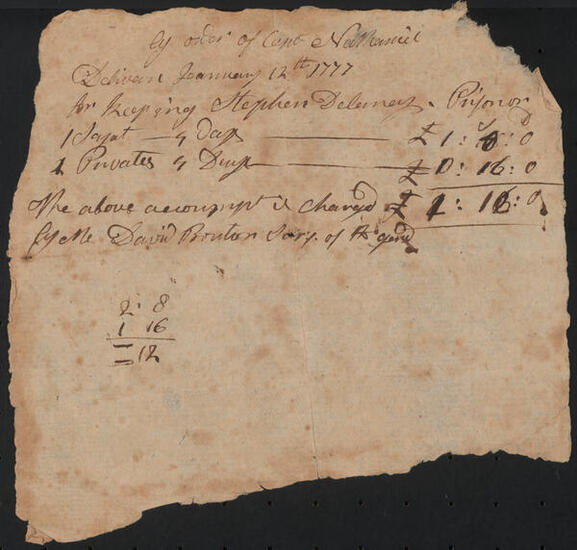 By order of Capt Nathaniel
Delivan Jeanuary 12th 1777
for Keeping Stephen Delemes Prisonor
1 Sajat 4 Days £ 1: 0: 0
1 Privates 4 Days £ 0: 16: 0
The above accompt is Charged £ 1: 16: 0
By Me David Bouton Sarj. of the gard
2 : 8
1 16
12